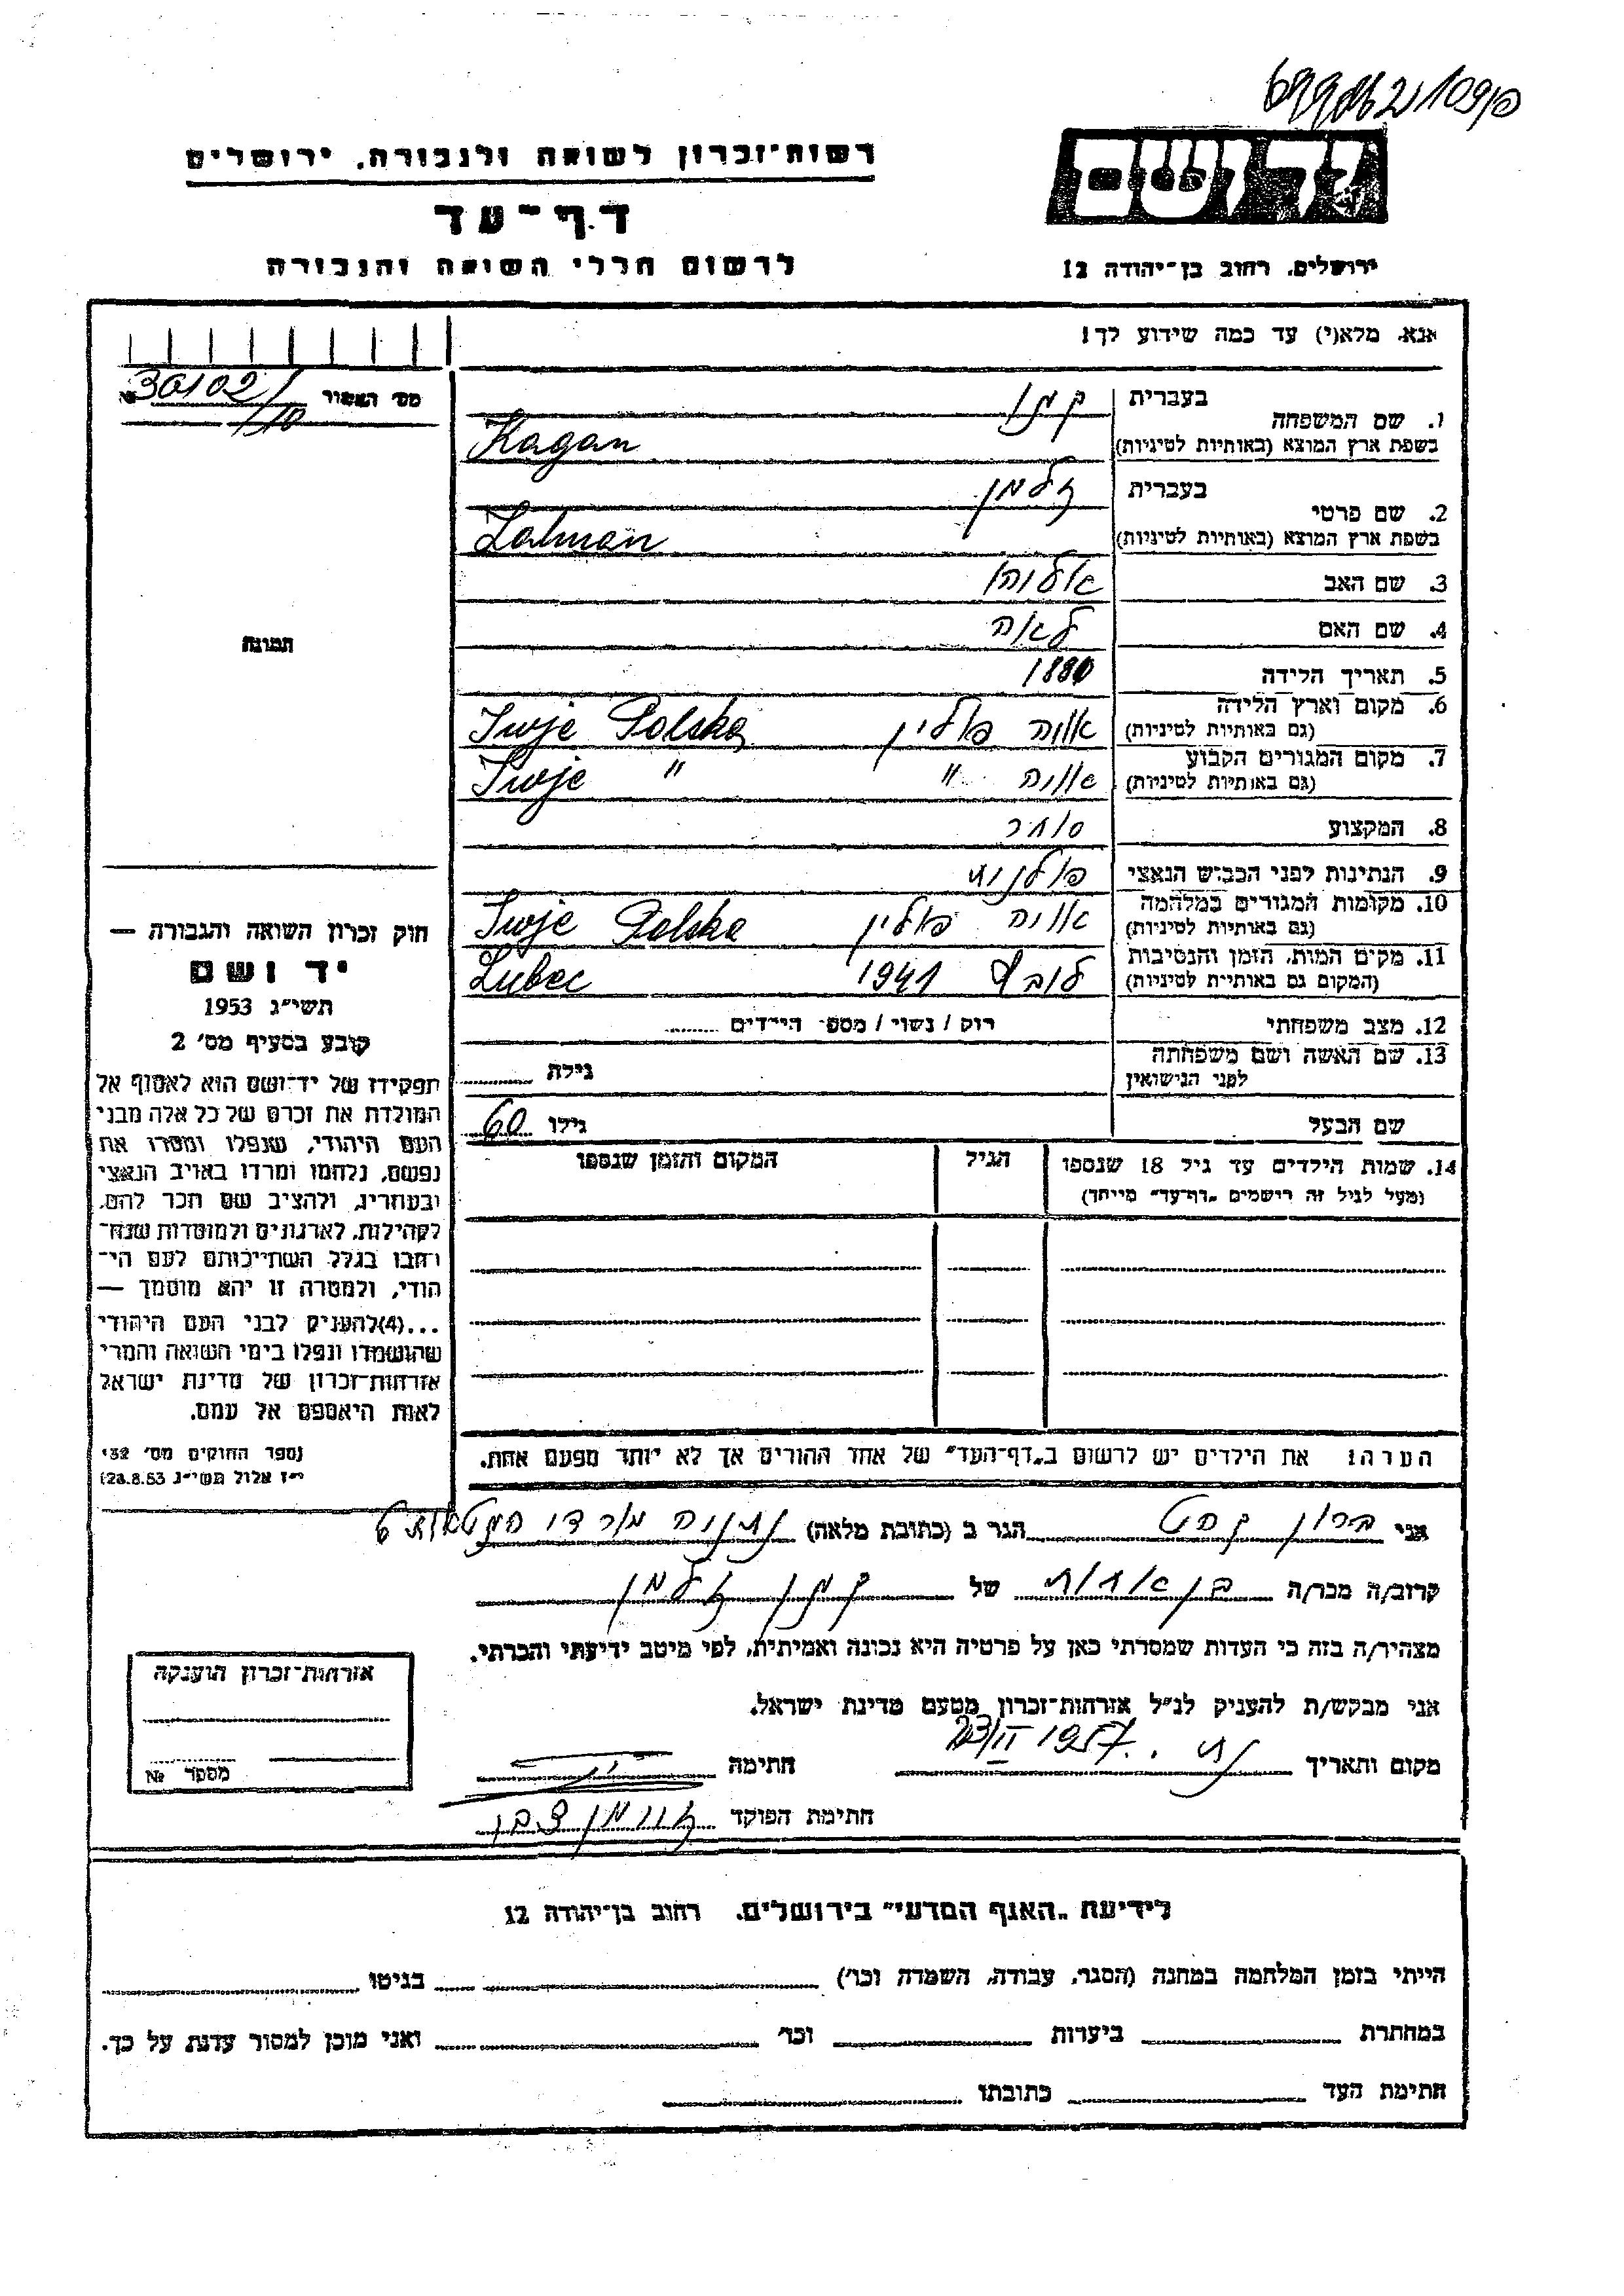 רשות־זכרון לשואה ולגבורה, ירושלים
דף־עד
לרשום חללי השואה והגבורה
יד ושם
ירושלים, רחוב בן־יהודה 12
אנא, מלא(י) עד כמה שידוע לך!
מס׳ האזור 30102/110
1. שם המשפחה
בעברית כגן
בשפת ארץ המוצא (באותיות לטיניות) Kagan
2. שם פרטי
בעברית זלמן
בשפת ארץ המוצא (באותיות לטיניות) Zalman
3. שם האב אליהו
4. שם האם לאה
5. תאריך הלידה 1880
6. מקום וארץ הלידה (גם באותיות לטיניות) איויה פולין Iwje Polska
7. מקום המגורים הקבוע (גם באותיות לטיניות) איויה " Iwje "
8. המקצוע סוחר
9. הנתינות לפני הכבוש הנאצי פולנית
10. מקומות המגורים במלחמה (גם באותיות לטיניות) איויה פולין Iwje Polska
11. מקום המות, הזמן והנסיבות (המקום גם באותיות לטיניות) 1941 Lubec
12. מצב משפחתי רוק / נשוי / מספ׳ הילדים
13. שם האשה ושם משפחתה לפני הנישואין גילה
שם הבעל גילו 60
14. שמות הילדים עד גיל 18 שנספו הגיל המקום והזמן שנספו
(מעל לגיל זה רושמים „דף־עד״ מיוחד)
הערה: את הילדים יש לרשום ב„דף־העד״ של אחד ההורים אך לא יותר מפעם אחת.
תמונה
חוק זכרון השואה והגבורה —
יד ושם
תשי״ג 1953
קובע בסעיף מס׳ 2
תפקידו של יד־ושם הוא לאסוף אל
המולדת את זכרם של כל אלה מבני
העם היהודי, שנפלו ומסרו את
נפשם, נלחמו ומרדו באויב הנאצי
ובעוזריו, ולהציב שם וזכר להם,
לקהילות, לארגונים ולמוסדות שנח־
רבו בגלל השתייכותם לעם הי־
הודי, ולמטרה זו יהא מוסמך —
...(4)להעניק לבני העם היהודי
שהושמדו ונפלו בימי השואה והמרי
אזרחות־זכרון של מדינת ישראל
לאות היאספם אל עמם.
(ספר החוקים מס׳ 132
י״ז אלול תשי״ג 28.8.53)
אני ברון הגר ב (כתובת מלאה) נתניה
קרוב/ה מכר/ה בן אחות של כגן זלמן
מצהיר/ה בזה כי העדות שמסרתי כאן על פרטיה היא נכונה ואמיתית, לפי מיטב ידיעתי והכרתי.
אני מבקש/ת להעניק לנ״ל אזרחות־זכרון מטעם מדינת ישראל.
מקום ותאריך 23/II 1957 חתימה
חתימת הפוקד
אזרחות־זכרון הוענקה
מספר №
לידיעת „האגף המדעי״ בירושלים, רחוב בן־יהודה 12
הייתי בזמן המלחמה במחנה (הסגר, עבודה, השמדה וכו׳) בגיטו
במחתרת ביערות וכו׳ ואני מוכן למסור עדות על כך.
חתימת העד כתובתו